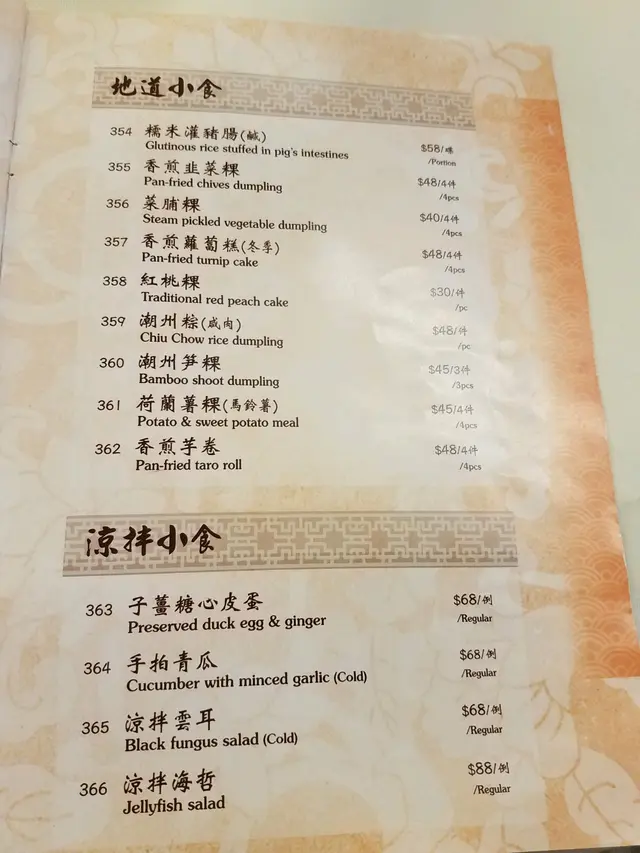 地道小食
354 糯米灌豬腸(鹹) $58/碟
Glutinous rice stuffed in pig's intestines /Portion
355 香煎韭菜粿 $48/4件
Pan-fried chives dumpling /4pcs
356 菜脯粿 $40/4件
Steam pickled vegetable dumpling /4pcs
357 香煎蘿蔔糕(冬季) $48/4件
Pan-fried turnip cake /4pcs
358 紅桃粿 $30/件
Traditional red peach cake /pc
359 潮州粽(咸肉) $48/件
Chiu Chow rice dumpling /pc
360 潮州笋粿 $45/3件
Bamboo shoot dumpling /3pcs
361 荷蘭薯粿(馬鈴薯) $45/4件
Potato & sweet potato meal /4pcs
362 香煎芋卷 $48/4件
Pan-fried taro roll /4pcs
涼拌小食
363 子薑糖心皮蛋 $68/例
Preserved duck egg & ginger /Regular
364 手拍青瓜 $68/例
Cucumber with minced garlic (Cold) /Regular
365 涼拌雲耳 $68/例
Black fungus salad (Cold) /Regular
366 涼拌海哲 $88/例
Jellyfish salad /Regular